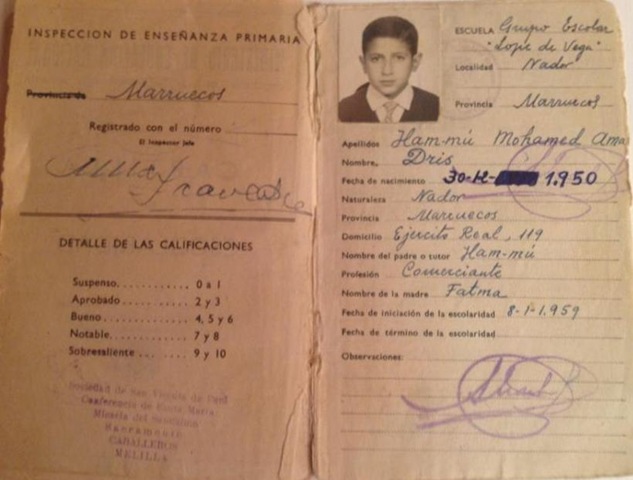 INSPECCION DE ENSEÑANZA PRIMARIA
Provincia de Marruecos
Registrado con el número
El Inspector Jefe
DETALLE DE LAS CALIFICACIONES
Suspenso............ 0 a 1
Aprobado ........... 2 y 3
Bueno ............... 4, 5 y 6
Notable.............. 7 y 8
Sobresaliente ...... 9 y 10
Sociedad de San Vicente de Paul
Conferencia de Santa María
Micaela del Santísimo
Sacramento
CABALLEROS
MELILLA
ESCUELA Grupo Escolar
"Lope de Vega"
Localidad Nador
Provincia Marruecos
Apellidos Ham-mú Mohamed Ama
Nombre, Dris
Fecha de nacimiento 30-12- 1.950
Naturaleza Nador
Provincia Marruecos
Domicilio Ejercito Real, 119
Nombre del padre o tutor Ham-mú
Profesión Comerciante
Nombre de la madre Fatma
Fecha de iniciación de la escolaridad 8-1-1.959
Fecha de término de la escolaridad
Observaciones: